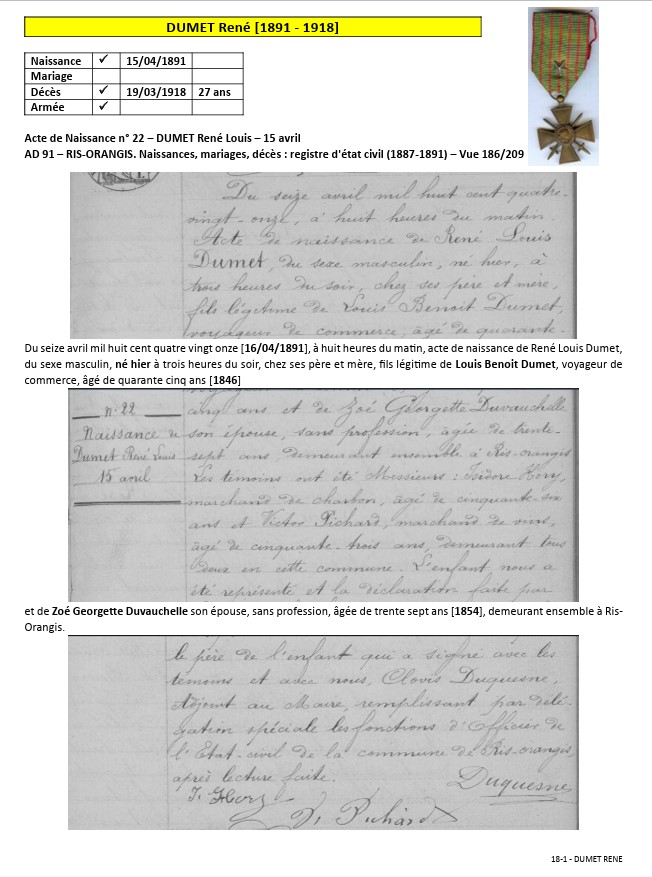 DUMET René [1891 - 1918]
Naissance ✓ 15/04/1891
Mariage
Décès ✓ 19/03/1918 27 ans
Armée ✓
Acte de Naissance n° 22 – DUMET René Louis – 15 avril
AD 91 – RIS-ORANGIS. Naissances, mariages, décès : registre d'état civil (1887-1891) – Vue 186/209
Du seize avril mil huit cent quatre-
vingt-onze, à huit heures du matin.
Acte de naissance de René Louis
Dumet, du sexe masculin, né hier, à
trois heures du soir, chez ses père et mère,
fils légitime de Louis Benoit Dumet,
voyageur de commerce, âgé de quarante-
Du seize avril mil huit cent quatre vingt onze [16/04/1891], à huit heures du matin, acte de naissance de René Louis Dumet,
du sexe masculin, né hier à trois heures du soir, chez ses père et mère, fils légitime de Louis Benoit Dumet, voyageur de
commerce, âgé de quarante cinq ans [1846]
n° 22
Naissance de
Dumet René Louis
15 avril
cinq ans et de Zoé Georgette Duvauchelle
son épouse, sans profession, âgée de trente-
sept ans, demeurant ensemble à Ris-orangis
Les témoins ont été Messieurs : Isidore Hory,
marchand de charbon, âgé de cinquante-six
ans et Victor Pichard, marchand de vins,
âgé de cinquante-trois ans, demeurant tous
deux en cette commune. L'enfant nous a
été représenté et la déclaration faite par
et de Zoé Georgette Duvauchelle son épouse, sans profession, âgée de trente sept ans [1854], demeurant ensemble à Ris-
Orangis.
le père de l'enfant qui a signé avec les
témoins et avec nous, Clovis Duquesne,
Adjoint au Maire, remplissant par délé-
gation spéciale les fonctions d'Officier de
l'Etat-civil de la commune de Ris-orangis,
après lecture faite.
Duquesne
I. Hory
V. Pichard
18-1 - DUMET RENE